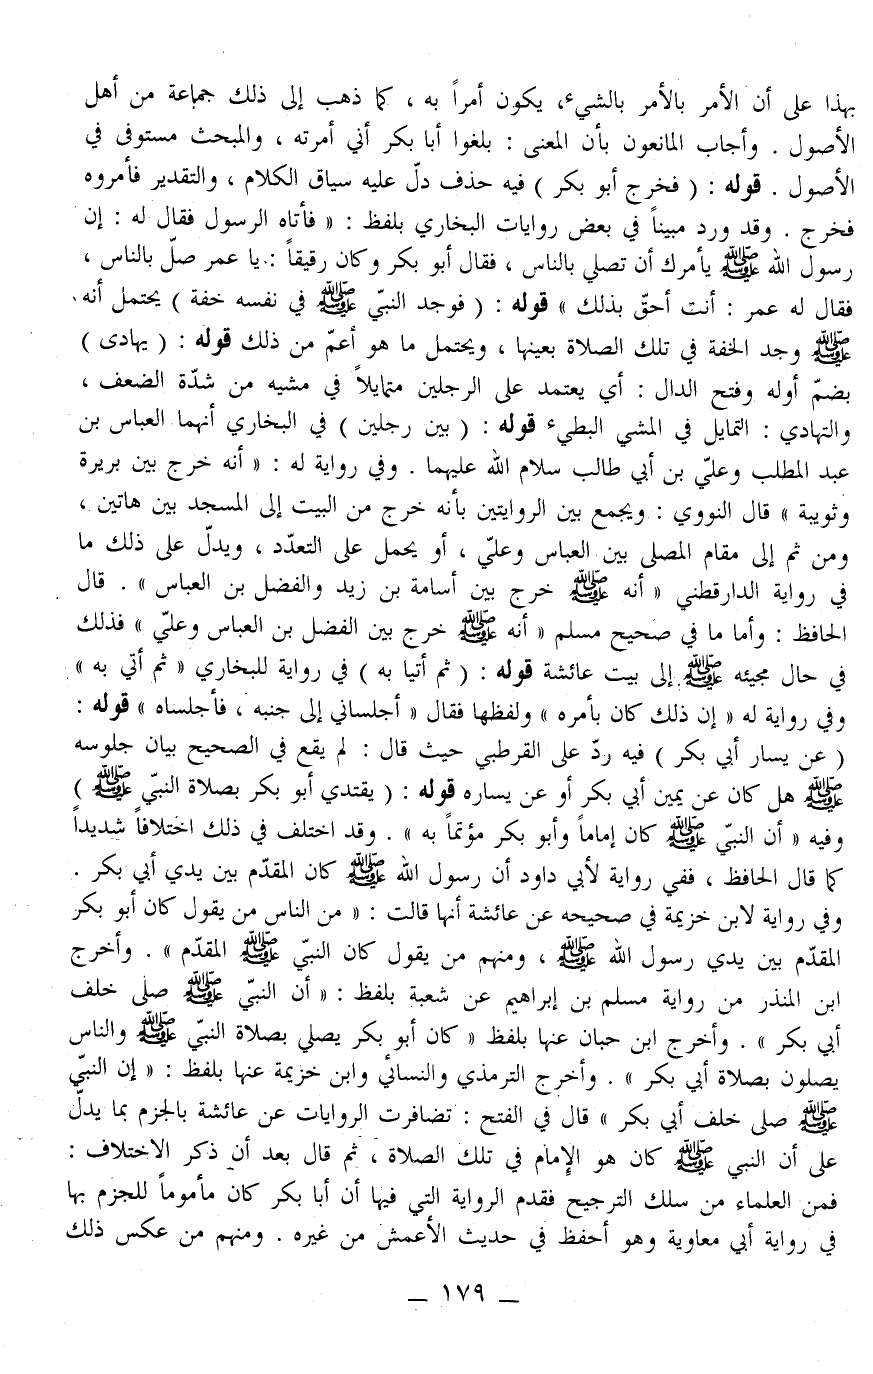 بهذا على أن الأمر بالأمر بالشيء، يكون أمراً به ، كما ذهب إلى ذلك جماعة من أهل
الأصول . وأجاب المانعون بأن المعنى : بلغوا أبا بكر أني أمرته ، والمبحث مستوفى في
الأصول . قوله : ( فخرج أبو بكر ) فيه حذف دلّ عليه سياق الكلام ، والتقدير فأمروه
فخرج . وقد ورد مبيناً في بعض روايات البخاري بلفظ : « فأتاه الرسول فقال له : إن
رسول الله ﷺ يأمرك أن تصلي بالناس ، فقال أبو بكر وكان رقيقاً : يا عمر صلّ بالناس ،
فقال له عمر : أنت أحقّ بذلك » قوله : ( فوجد النبيّ ﷺ في نفسه خفة ) يحتمل أنه
ﷺ وجد الخفة في تلك الصلاة بعينها ، ويحتمل ما هو أعمّ من ذلك قوله : ( يهادى )
بضمّ أوله وفتح الدال : أي يعتمد على الرجلين متمايلاً في مشيه من شدّة الضعف ،
والتهادي : التمايل في المشي البطيء قوله : ( بين رجلين ) في البخاري أنهما العباس بن
عبد المطلب وعليّ بن أبي طالب سلام الله عليهما . وفي رواية له : « أنه خرج بين بريرة
وثويبة » قال النووي : ويجمع بين الروايتين بأنه خرج من البيت إلى المسجد بين هاتين ،
ومن ثم إلى مقام المصلى بين العباس وعليّ ، أو يحمل على التعدّد ، ويدلّ على ذلك ما
في رواية الدارقطني « أنه ﷺ خرج بين أسامة بن زيد والفضل بن العباس » . قال
الحافظ : وأما ما في صحيح مسلم « أنه ﷺ خرج بين الفضل بن العباس وعليّ » فذلك
في حال مجيئه ﷺ إلى بيت عائشة قوله : ( ثم أتيا به ) في رواية للبخاري « ثم أتي به »
وفي رواية له « إن ذلك كان بأمره » ولفظها فقال « أجلساني إلى جنبه ، فأجلساه » قوله :
( عن يسار أبي بكر ) فيه ردّ على القرطبي حيث قال : لم يقع في الصحيح بيان جلوسه
ﷺ هل كان عن يمين أبي بكر أو عن يساره قوله : ( يقتدي أبو بكر بصلاة النبيّ ﷺ )
وفيه « أن النبيّ ﷺ كان إماماً وأبو بكر مؤتماً به » . وقد اختلف في ذلك اختلافاً شديداً
كما قال الحافظ ، ففي رواية لأبي داود أن رسول الله ﷺ كان المقدّم بين يدي أبي بكر .
وفي رواية لابن خزيمة في صحيحه عن عائشة أنها قالت : « من الناس من يقول كان أبو بكر
المقدّم بين يدي رسول الله ﷺ ، ومنهم من يقول كان النبيّ ﷺ المقدّم » . وأخرج
ابن المنذر من رواية مسلم بن إبراهيم عن شعبة بلفظ : « أن النبيّ ﷺ صلى خلف
أبي بكر » . وأخرج ابن حبان عنها بلفظ « كان أبو بكر يصلي بصلاة النبيّ ﷺ والناس
يصلون بصلاة أبي بكر » . وأخرج الترمذي والنسائي وابن خزيمة عنها بلفظ : « إن النبيّ
ﷺ صلى خلف أبي بكر » قال في الفتح : تضافرت الروايات عن عائشة بالجزم بما يدلّ
على أن النبي ﷺ كان هو الإمام في تلك الصلاة ، ثم قال بعد أن ذكر الاختلاف :
فمن العلماء من سلك الترجيح فقدم الرواية التي فيها أن أبا بكر كان مأموماً للجزم بها
في رواية أبي معاوية وهو أحفظ في حديث الأعمش من غيره . ومنهم من عكس ذلك
ـ ١٧٩ ـ